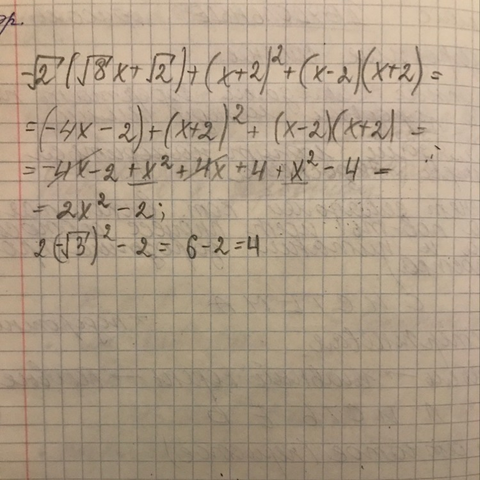 др.
-√2(√8x+√2)+(x+2)²+(x-2)(x+2)=
=(-4x-2)+(x+2)²+(x-2)(x+2)=
=-4x-2+x²+4x+4+x²-4=
=2x²-2;
2(-√3)²-2=6-2=4